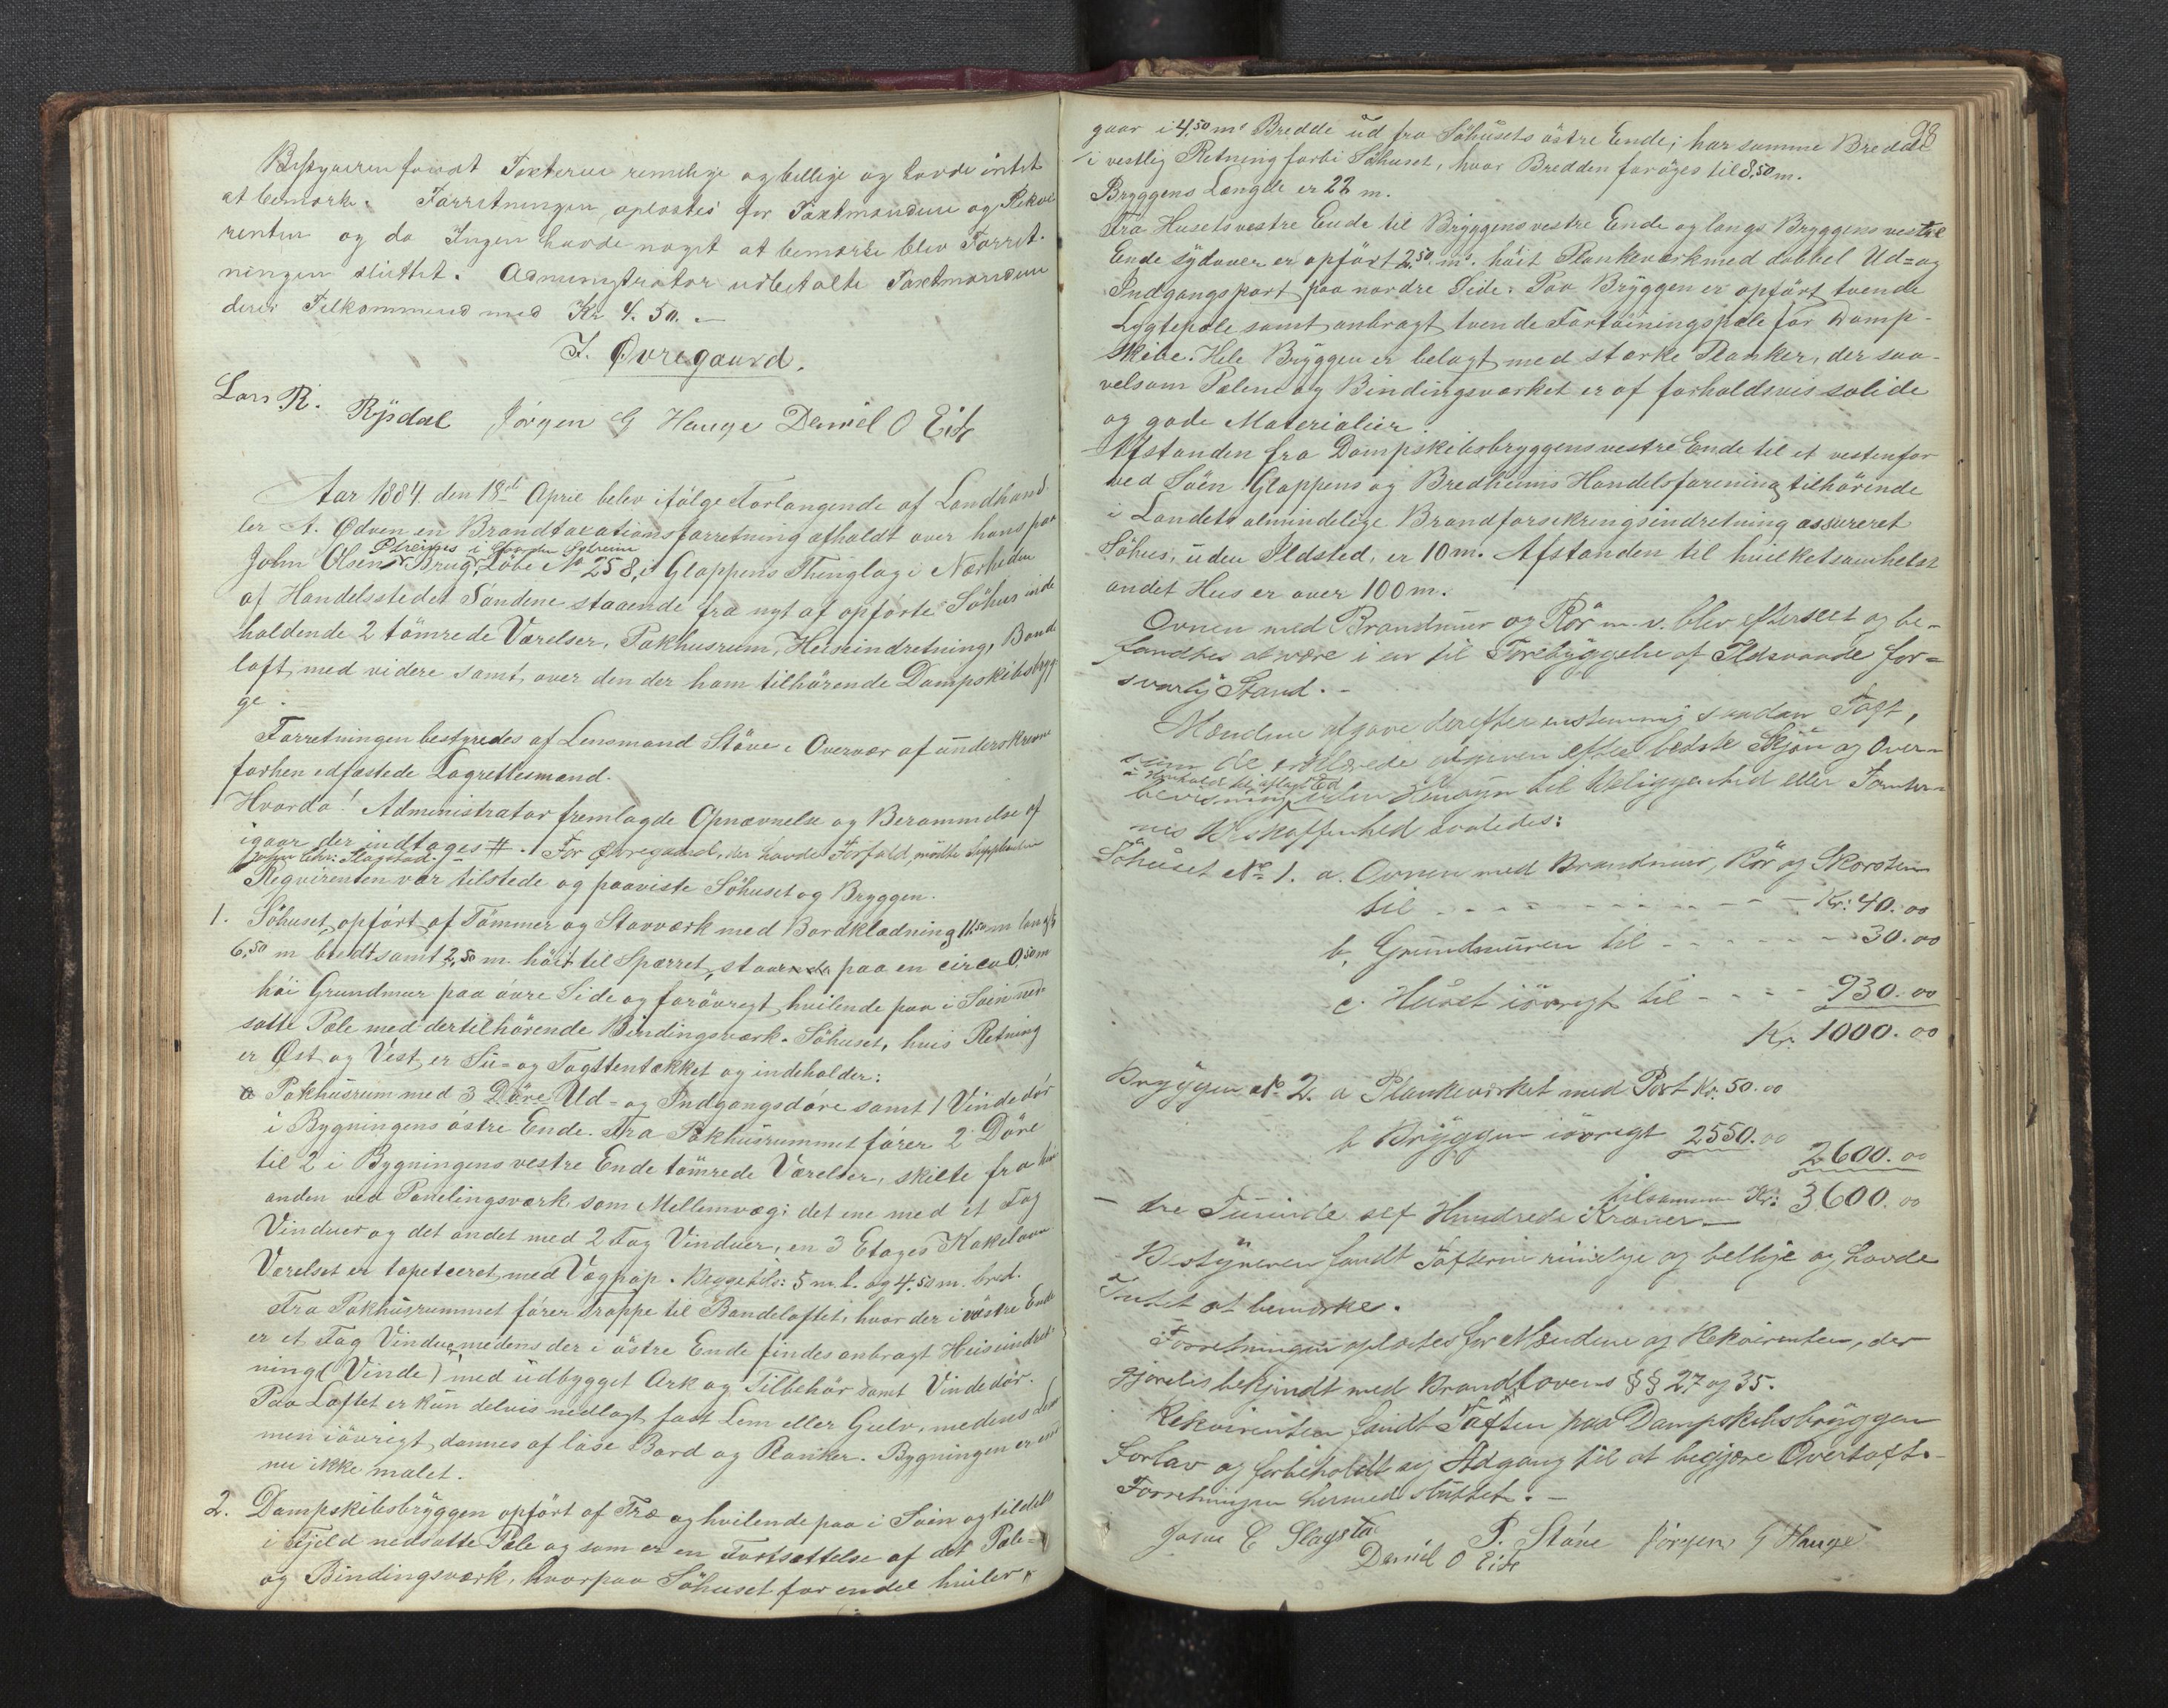 Bestyreren fandt Taxterne rimelige og billige og havde intet
at bemærke. Forretningen oplæstes for Taxtmændene og Rekvi
renten og da Ingen havde noget at bemærke blev Forret-
ningen sluttet. Administrator udbetalte Taxtmændene
deres Tilkommende med Kr 4.50.-
J. Øvregaard.
Lars R. Rysdal Jörgen G Hauge Daniel O Eide
Aar 1884 den 18de April blev ifölge Forlangende af Landhand
ler A. Ødven en Brandtaxationsforretning afholdt over hans paa
John Olsen Brug, Löbe No 258, i Gloppens Thinglag i Nærheden
af Handelsstedet Sandene staaende fra nyt af opförte Söhus inde
holdende 2 tömrede Værelser, Pakhusrum, Heiseindretning, Bande
loft med videre samt over den der ham tilhörende Dampskibsbryg
ge.
Forretningen bestyredes af Lensmand Stöve i Overvær af underskrevne
forhen edfæstede Lagrettesmænd.
Hvorda! Administrator fremlagde Opnævnelse og Berammelse af
igaar der indtages #. For Øvregaard, der havde Forfald, mödte Supplenten
John Chr. Slagstad.
Reqvirenten var tilstede og paaviste Söhuset og Bryggen.
1. Söhuset, opfört af Tömmer og Stavværk med Bordklædning 11,50 m langt
6,50 m bredt samt 2,50 m. höit til Spærret, staar paa en circa 0,50 m
höi Grundmur paa övre Side og forövrigt hvilende paa i Söen ned-
satte Pæle med dertilhörende Bindingsværk. Söhuset, hvis Retning
er Øst og Vest, er Su- og Tagstentækket og indeholder:
a Pakhusrum med 3 Döre Ud- og Indgangsdöre samt 1 Vindedör
i Bygningens östre Ende. Fra Pakhusrummet förer 2 Döre
til 2 i Bygningens vestre Ende tömrede Værelser, skilte fra hin
anden ved Panelingsværk som Mellemvæg; det ene med et Fag
Vinduer og det andet med 2 Fag Vinduer, en 3 Etages Kakelovn
Værelset er tapetceret med Vægpap. 5 m. l. og 4,50 m. bred.
Fra Pakhusrummet förer Trappe til Bandeloftet, hvor der i vestre Ende
er et Fag Vinduer, medens der i östre Ende findes anbragt Heiseindret-
ning (Vinde) med udbygget Ark og Tilbehör samt Vindedör.
Paa Loftet er kun delvis nedlagt fast Lem eller Gulv, medens Lem
men iövrigt dannes af löse Bord og Planker. Bygningen er end
nu ikke malet.
2. Dampskibsbryggen opfört af Træ og hvilende paa i Söen og tildels
i Fjeld nedsatte Pæle og som er en Fortsættelse af det Pæle-
og Bindingsværk, hvorpaa Söhuset for endel hviler,
98
gaar i 4,50 m's Bredde ud fra Söhusets östre Ende; har samme Bredde
i vestlig Retning forbi Söhuset, hvor Bredden foröges til 8,50 m.
Bryggens Længde er 22 m.
Fra Husets vestre Ende til Bryggens vestre Ende og langs Bryggens vestre
Ende sydover er opfört 2,50 m's höit Plankeværk med dobbel Ud- og
Indgangsport paa nordre Side. Paa Bryggen er opfört tvende
Lygtepæle samt anbragt tvende Fortöiningspæle for Damp-
skibe. Hele Bryggen er belagt med stærke Planker, der saa-
velsom Pælene og Bindingsværket er af forholdsvis solide
og gode Materialier.
Afstanden fra Dampskibsbryggens vestre Ende til et vestenfor
ved Söen Gloppens og Bredheims Handelsforening tilhörende
i Landets almindelige Brandforsikringsindretning assureret
Söhus, uden Ildsted, er 10 m. Afstanden til hvilketsomhelst
andet Hus er over 100 m.
Ovnen med Brandmur og Rör m. v. blev efterseet og be-
fandtes at være i en til Forebyggelse af Ildsvaade for-
svarlig Stand.-
Mændene afgave derefter enstemmig saadan Taxt,
som de erklærede afgiven efter bedste Skjön og Over-
i Henhold til aflagt Ed
bevisning uden Hensyn til Beliggenhed eller Tomtens
Beskaffenhed saaledes:
Söhuset No 1. a. Ovnen med Brandmur, Rör og Skorsten
til - - - - Kr: 40.00
b. Grundmuren til - - - - 30.00
c. Huset iövrigt til - - - - 930.00
Kr. 1000.00
Bryggen No 2. a Plankeværket med Port Kr. 50.00
b Bryggen iövrigt 2550.00
2600.00
tilsammen Kr: 3600.00
- tre Tusinde sex Hundrede Kroner -
Bestyreren fandt Taxterne rimelige og billige og havde
Intet at bemærke.
Forretningen oplæstes for Mændene og Rekvirenten, der
gjordes bekjendt med Brandlovens §§ 27 og 35.
Rekvirenten fandt Taxten paa Dampskibsbryggen
for lav og forbeholdt sig Adgang til at begjære Overtaxt.-
Forretningen hermed sluttet.-
John C Slagsta P. Stöve Jörgen G Hauge
Daniel O Eide